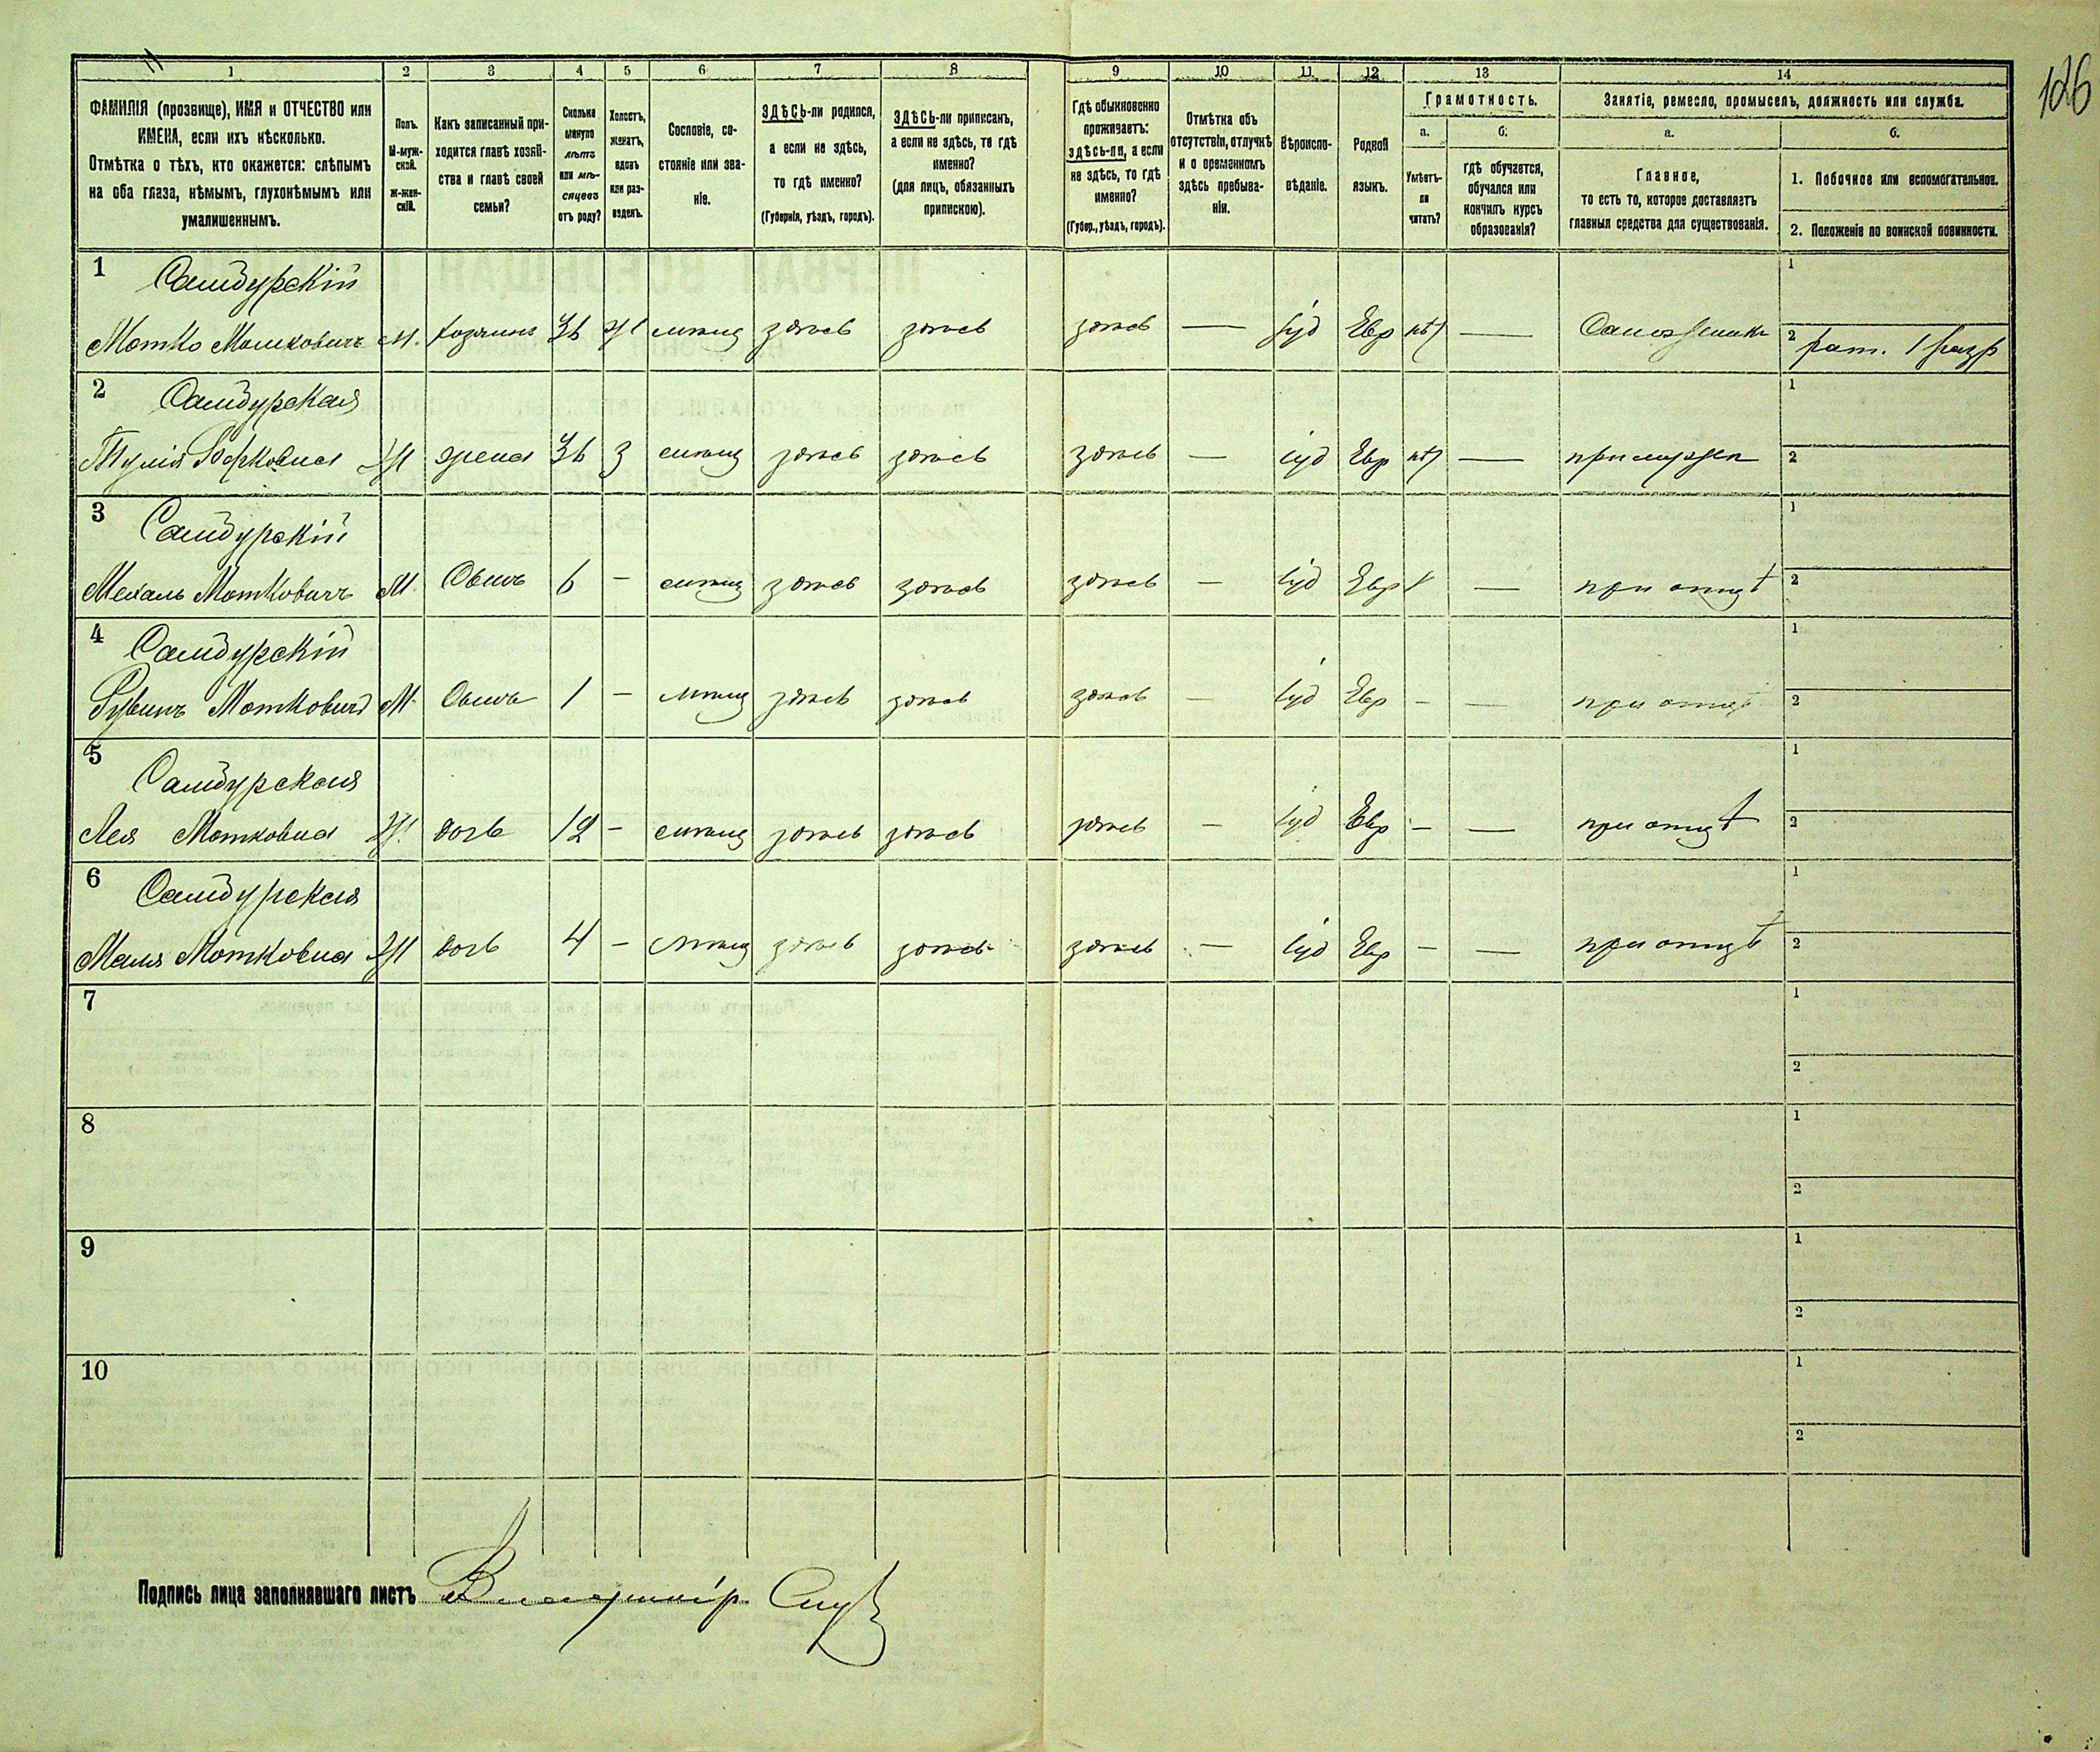 11
126
1 2 3 4 5 6 7 8 9 10 11 12 13 14
ФАМИЛІЯ (прозвище), ИМЯ и ОТЧЕСТВО или
ИМЕНА, если ихъ нѣсколько.
Отмѣтка о тѣхъ, кто окажется: слѣпымъ
на оба глаза, нѣмымъ, глухонѣмымъ или
умалишеннымъ.
Полъ.
М-муж-
ской.
Ж-жен-
скій.
Какъ записанный при-
ходится главѣ хозяй-
ства и главѣ своей
семьи?
Сколько
минуло
лѣтъ
или мѣ-
сяцевъ
отъ роду?
Холостъ,
женатъ,
вдовъ
или раз-
веденъ.
Сословіе, со-
стояніе или зва-
ніе.
ЗДѢСЬ-ли родился,
а если не здѣсь,
то гдѣ именно?
(Губернія, уѣздъ, городъ).
ЗДѢСЬ-ли приписанъ,
а если не здѣсь, то гдѣ
именно?
(для лицъ, обязанныхъ
припискою).
Гдѣ обыкновенно
проживаетъ:
здѣсь-ли, а если
не здѣсь, то гдѣ
именно?
(Губер., уѣздъ, городъ).
Отмѣтка объ
отсутствіи, отлучкѣ
и о временномъ
здѣсь пребыва-
ніи.
Вѣроиспо-
вѣданіе.
Родной
языкъ.
Грамотность.
а.
Умѣетъ-
ли
читать?
б.
гдѣ обучается,
обучался или
кончилъ курсъ
образованія?
Занятіе, ремесло, промыселъ, должность или служба.
а.
Главное,
то есть то, которое доставляетъ
главныя средства для существованія.
б.
1. Побочное или вспомогательное.
2. Положеніе по воинской повинности.
1 Самдурскій 1
Мотко Мошковичъ М. хозяинъ 36 Ж мѣщ здѣсь здѣсь здѣсь — іуд Евр нѣт — Сапожникъ 2 рат. 1 разр
2 Самдурская 1
Берковна Ж жена 36 З мѣщ здѣсь здѣсь здѣсь — іуд Евр нѣт — при мужѣ 2
3 Самдурскій 1
Мотковичъ М Сынъ 6 - мѣщ здѣсь здѣсь здѣсь — іуд Евр — при отцѣ 2
4 Самдурскій 1
Рувинъ Мотковичъ М Сынъ 1 - мѣщ здѣсь здѣсь здѣсь — іуд Евр - — при отцѣ 2
5 Самдурская 1
Лея Мотковна Ж. дочь 12 - мѣщ здѣсь здѣсь здѣсь — іуд Евр - — при отцѣ 2
6 Самдурская 1
Маля Мотковна Ж дочь 4 - мѣщ здѣсь здѣсь здѣсь — іуд Евр - — при отцѣ 2
7 1
2
8 1
2
9 1
2
10 1
2
Подпись лица заполнявшаго листъ